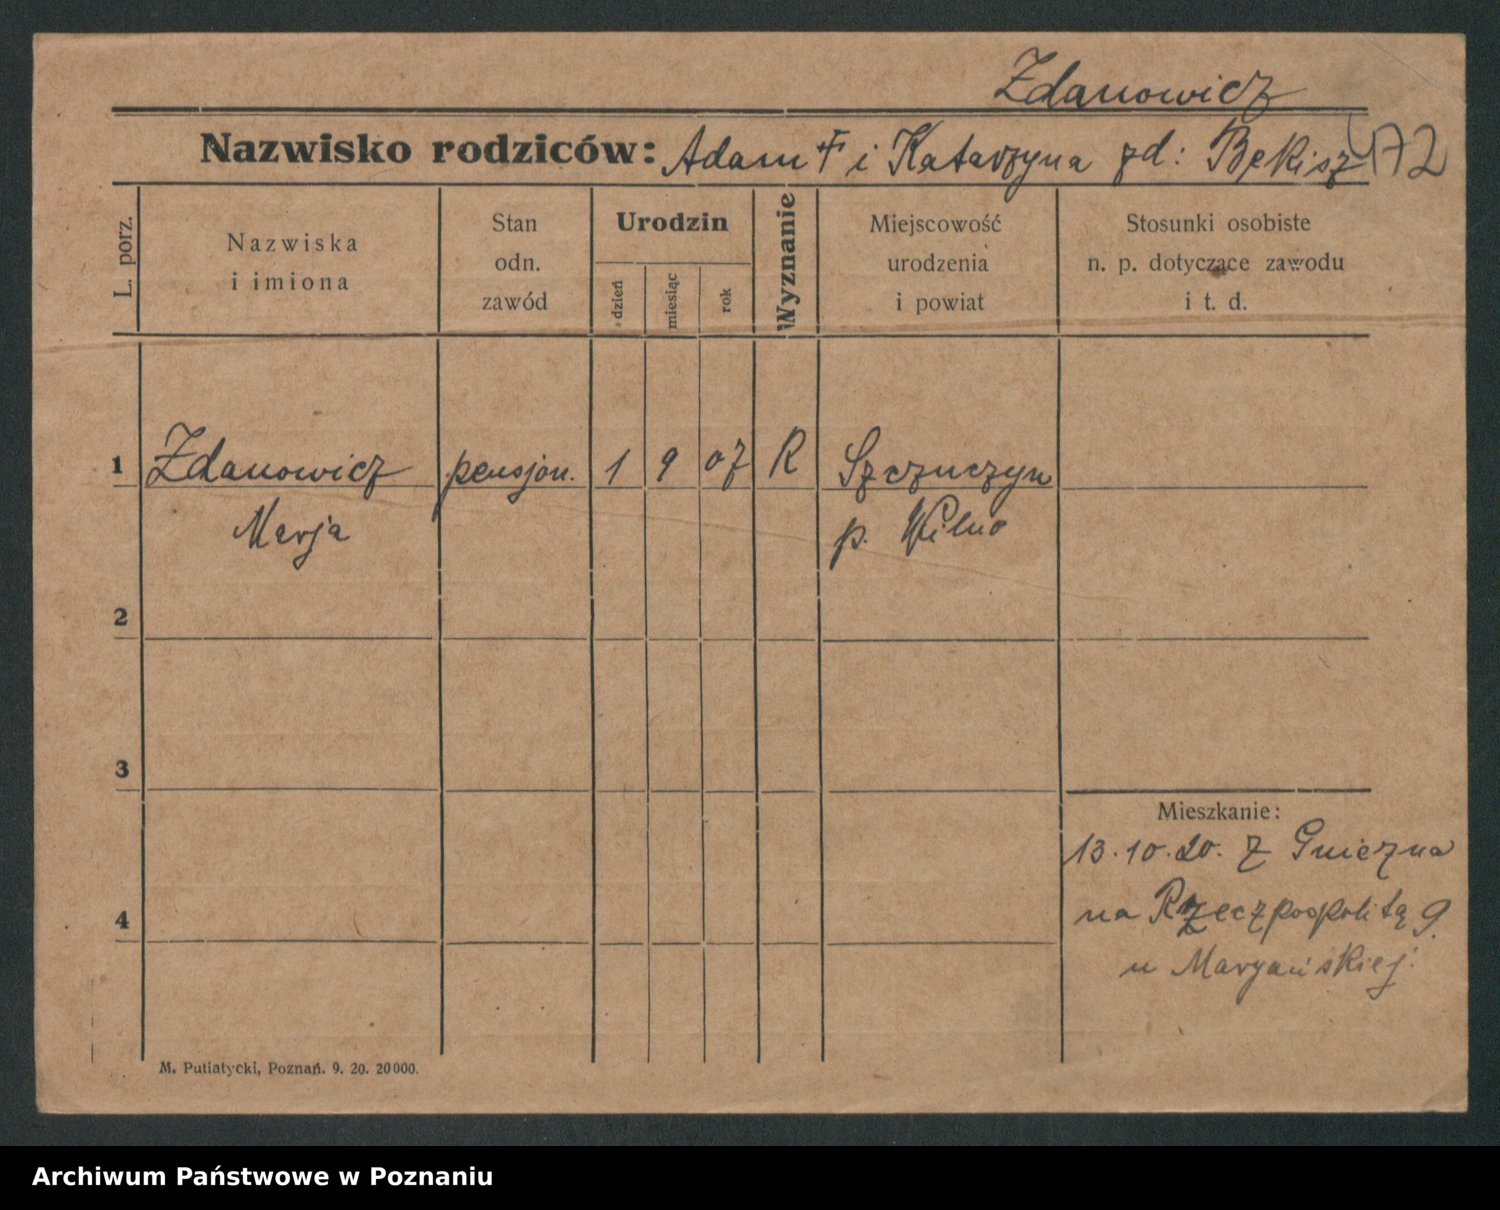 Zdanowicz
Nazwisko rodziców: Adam † i Katarzyna zd: Bękisz
472
L. porz.
Nazwiska
i imiona
Stan
odn.
zawód
Urodzin
dzień
miesiąc
rok
Wyznanie
Miejscowość
urodzenia
i powiat
Stosunki osobiste
n. p. dotyczące zawodu
i t. d.
1 Zdanowicz pensjon. 1 9 07 R Szczuczyn
Marja p. Wilno
2
3
Mieszkanie:
13.10.20. z Gniezna
na Rzeczpospolitą 9.
4
u Maryańskiej.
M. Putiatycki, Poznań. 9. 20. 20000.
Archiwum Państwowe w Poznaniu